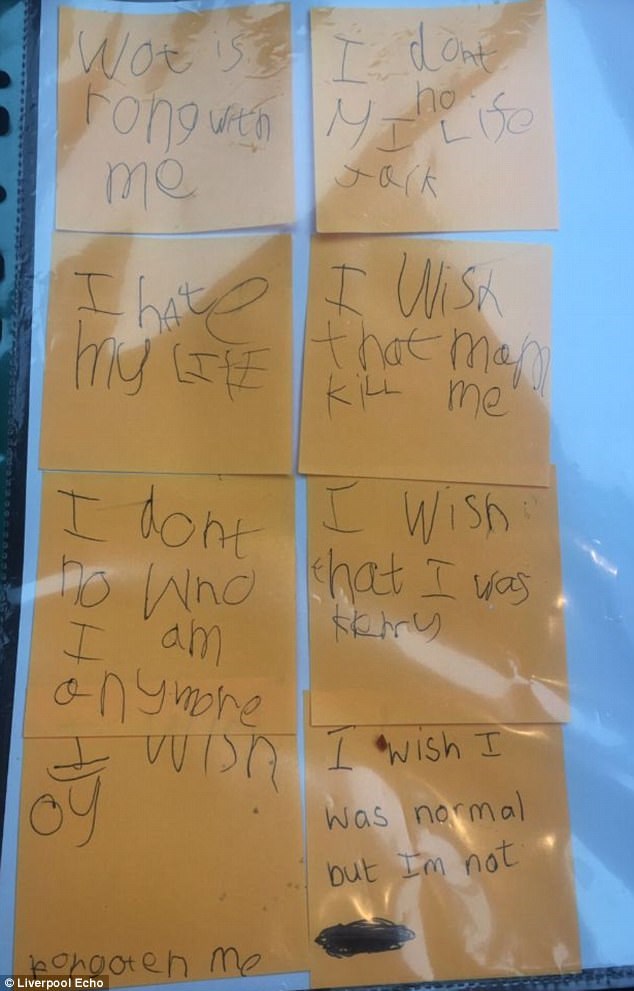 Wot is
rong with
me
I dont
no
My Life
I hate
my LIfE
I Wish
that mam
KiLL me
I dont
no Who
I am
anymore
I Wish
that I was
I wish
oy
me
I wish I
was normal
but Im not
© Liverpool Echo